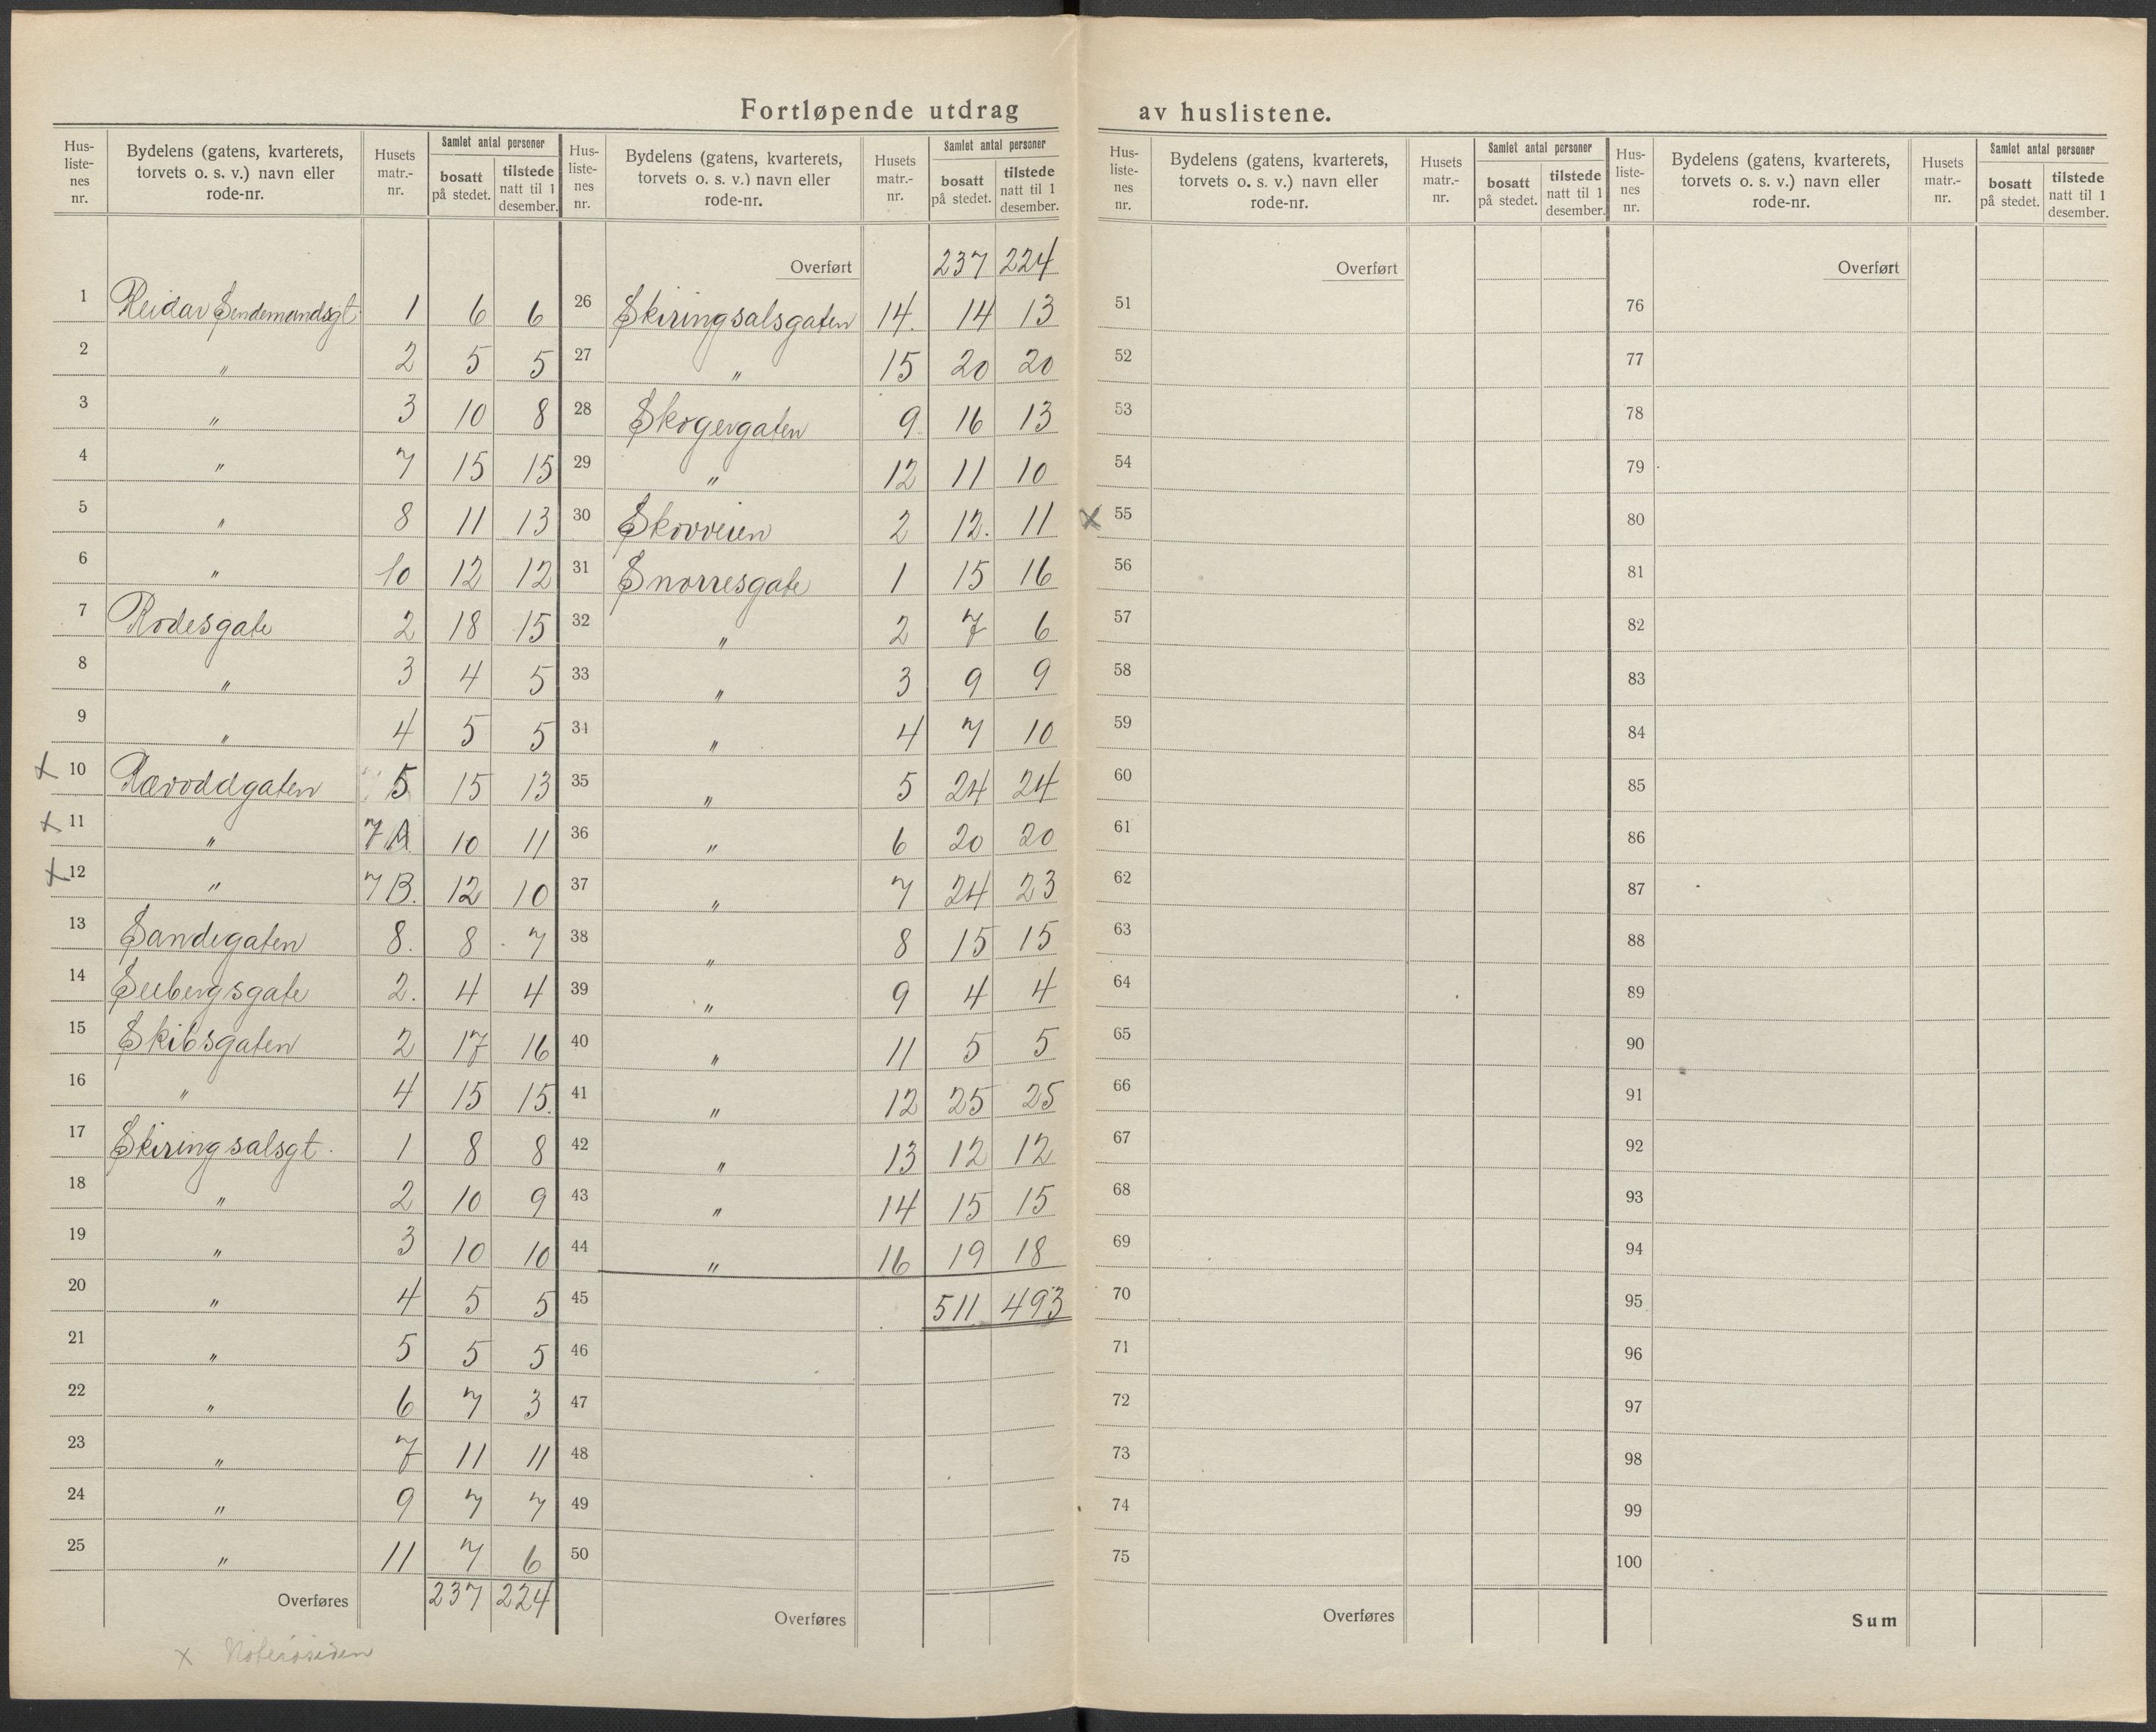 Fortløpende utdrag av huslistene.
Hus-liste-nes nr. | Bydelens (gatens, kvarterets, torvets o. s. v.) navn eller rode-nr. | Husets matr.-nr. | Samlet antal personer | bosatt på stedet. | tilstede natt til 1 desember.
1 Reidar Sendemandsgt. 1 6 6
2 " 2 5 5
3 " 3 10 8
4 " 7 15 15
5 " 8 11 13
6 " 10 12 12
7 Rodesgate 2 18 15
8 " 3 4 5
9 " 4 5 5
x 10 Ræroddgaten 5 15 13
x 11 " 7A 10 11
x 12 " 7B. 12 10
13 Sandegaten 8. 8 7
14 Seebergsgate 2. 4 4
15 Skibsgaten 2 17 16
16 " 4 15 15.
17 Skiringsalsgt. 1 8 8
18 " 2 10 9
19 " 3 10 10
20 " 4 5 5
21 " 5 5 5
22 " 6 7 3
23 " 7 11 11
24 " 9 7 7
25 " 11 7 6
Overføres 237 224
x Nøterøsiden
Hus-liste-nes nr. | Bydelens (gatens, kvarterets, torvets o. s. v.) navn eller rode-nr. | Husets matr.-nr. | Samlet antal personer | bosatt på stedet. | tilstede natt til 1 desember.
Overført 237 224
26 Skiringsalsgaten 14. 14 13
27 " 15 20 20
28 Skogergaten 9. 16 13
29 " 12 11 10
30 Skovveien 2 12. 11
31 Snorresgate 1 15 16
32 " 2 7 6
33 " 3 9 9
34 " 4 7 10
35 " 5 24 24
36 " 6 20 20
37 " 7 24 23
38 " 8 15 15
39 " 9 4 4
40 " 11 5 5
41 " 12 25 25
42 " 13 12 12
43 " 14 15 15
44 " 16 19 18
45 511 493
46
47
48
49
50
Overføres
Hus-liste-nes nr. | Bydelens (gatens, kvarterets, torvets o. s. v.) navn eller rode-nr. | Husets matr.-nr. | Samlet antal personer | bosatt på stedet. | tilstede natt til 1 desember.
Overført
51
52
53
54
x 55
56
57
58
59
60
61
62
63
64
65
66
67
68
69
70
71
72
73
74
75
Overføres
Hus-liste-nes nr. | Bydelens (gatens, kvarterets, torvets o. s. v.) navn eller rode-nr. | Husets matr.-nr. | Samlet antal personer | bosatt på stedet. | tilstede natt til 1 desember.
Overført
76
77
78
79
80
81
82
83
84
85
86
87
88
89
90
91
92
93
94
95
96
97
98
99
100
Sum